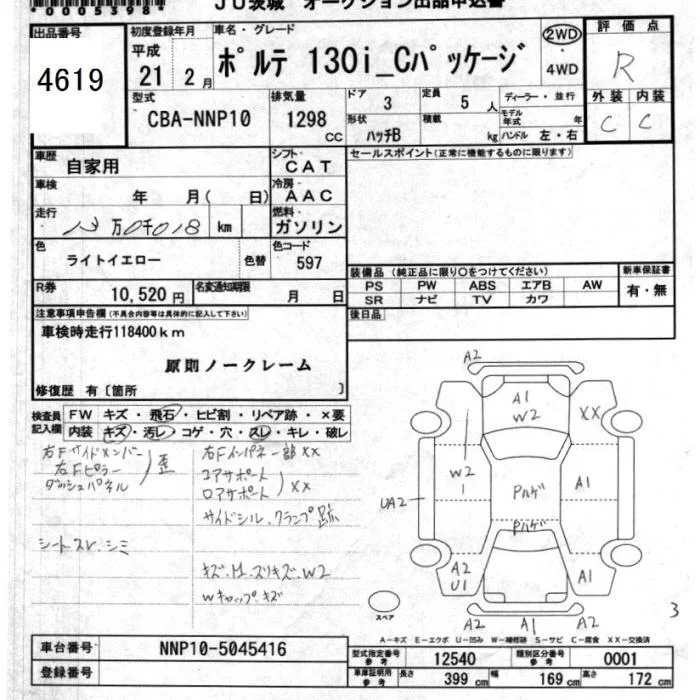 *00053984*
JU茨城 オークション出品申込書
出品番号 4619
初度登録年月 平成 21 2月
車名・グレード ポルテ 130i_Cパッケージ
2WD
4WD
評価点 R
外装 内装
C C
型式 CBA-NNP10
排気量 1298 CC
ドア 3
定員 5 人
ディーラー・並行
形状 ハッチB
積載 kg
モデル年式 年
ハンドル 左・右
車歴 自家用
シフト CAT
セールスポイント(正常に機能するものに限ります)
車検 年 月( 日)
冷房 AAC
走行 万 千018 km
燃料 ガソリン
色 ライトイエロー 色替
色コード 597
装備品 (純正品に限り○をつけてください)
新車保証書
PS PW ABS エアB AW
有・無
SR ナビ TV カワ
R券 10,520 円
名変通知期限 月 日
後日品
注意事項申告欄(不具合内容等は具体的に記入して下さい)
車検時走行118400km
原則ノークレーム
修復歴 有〔箇所 〕
検査員記入欄
FW キズ・飛石・ヒビ割・リペア跡・×要
内装 キズ・汚レ・コゲ・穴・スレ・キレ・破レ
右Fサイドメンバー
右Fピラー
ダッシュパネル
歪
右Fインパネ一部XX
コアサポート
ロアサポート
XX
サイドシル、クランプ跡
シートスレ、シミ
キズ、スリキズ、W2
Wキャップ、キズ
A2
A1
W2
XX
W2
1
Pルゲ
A1
UA2
Pルゲ
A2
U1
A1
A2 A1 A2
スペア
3
A-キズ E-エクボ U-凹み W-補修跡 S-サビ C-腐食 XX-交換済
車台番号 NNP10-5045416
登録番号
型式指定番号 参考 12540
類別区分番号 参考 0001
車庫証明用 参考 長さ 399 cm 幅 169 cm 高さ 172 cm